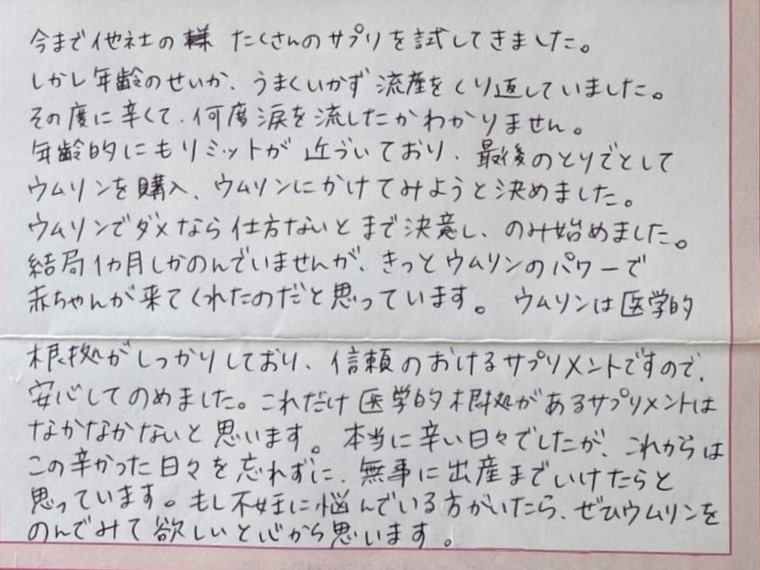 今まで他社の様 たくさんのサプリを試してきました。
しかし年齢のせいか、うまくいかず流産をくり返していました。
その度に辛くて、何度涙を流したかわかりません。
年齢的にもリミットが近づいており、最後のとりでとして
ウムリンを購入、ウムリンにかけてみようと決めました。
ウムリンでダメなら仕方ないとまで決意し、のみ始めました。
結局1カ月しかのんでいませんが、きっとウムリンのパワーで
赤ちゃんが来てくれたのだと思っています。 ウムリンは医学的
根拠がしっかりしており、信頼のおけるサプリメントですので、
安心してのめました。これだけ医学的根拠があるサプリメントは
なかなかないと思います。 本当に辛い日々でしたが、これからは
この辛かった日々を忘れずに、無事に出産までいけたらと
思っています。もし不妊に悩んでいる方がいたら、ぜひウムリンを
のんでみて欲しいと心から思います。